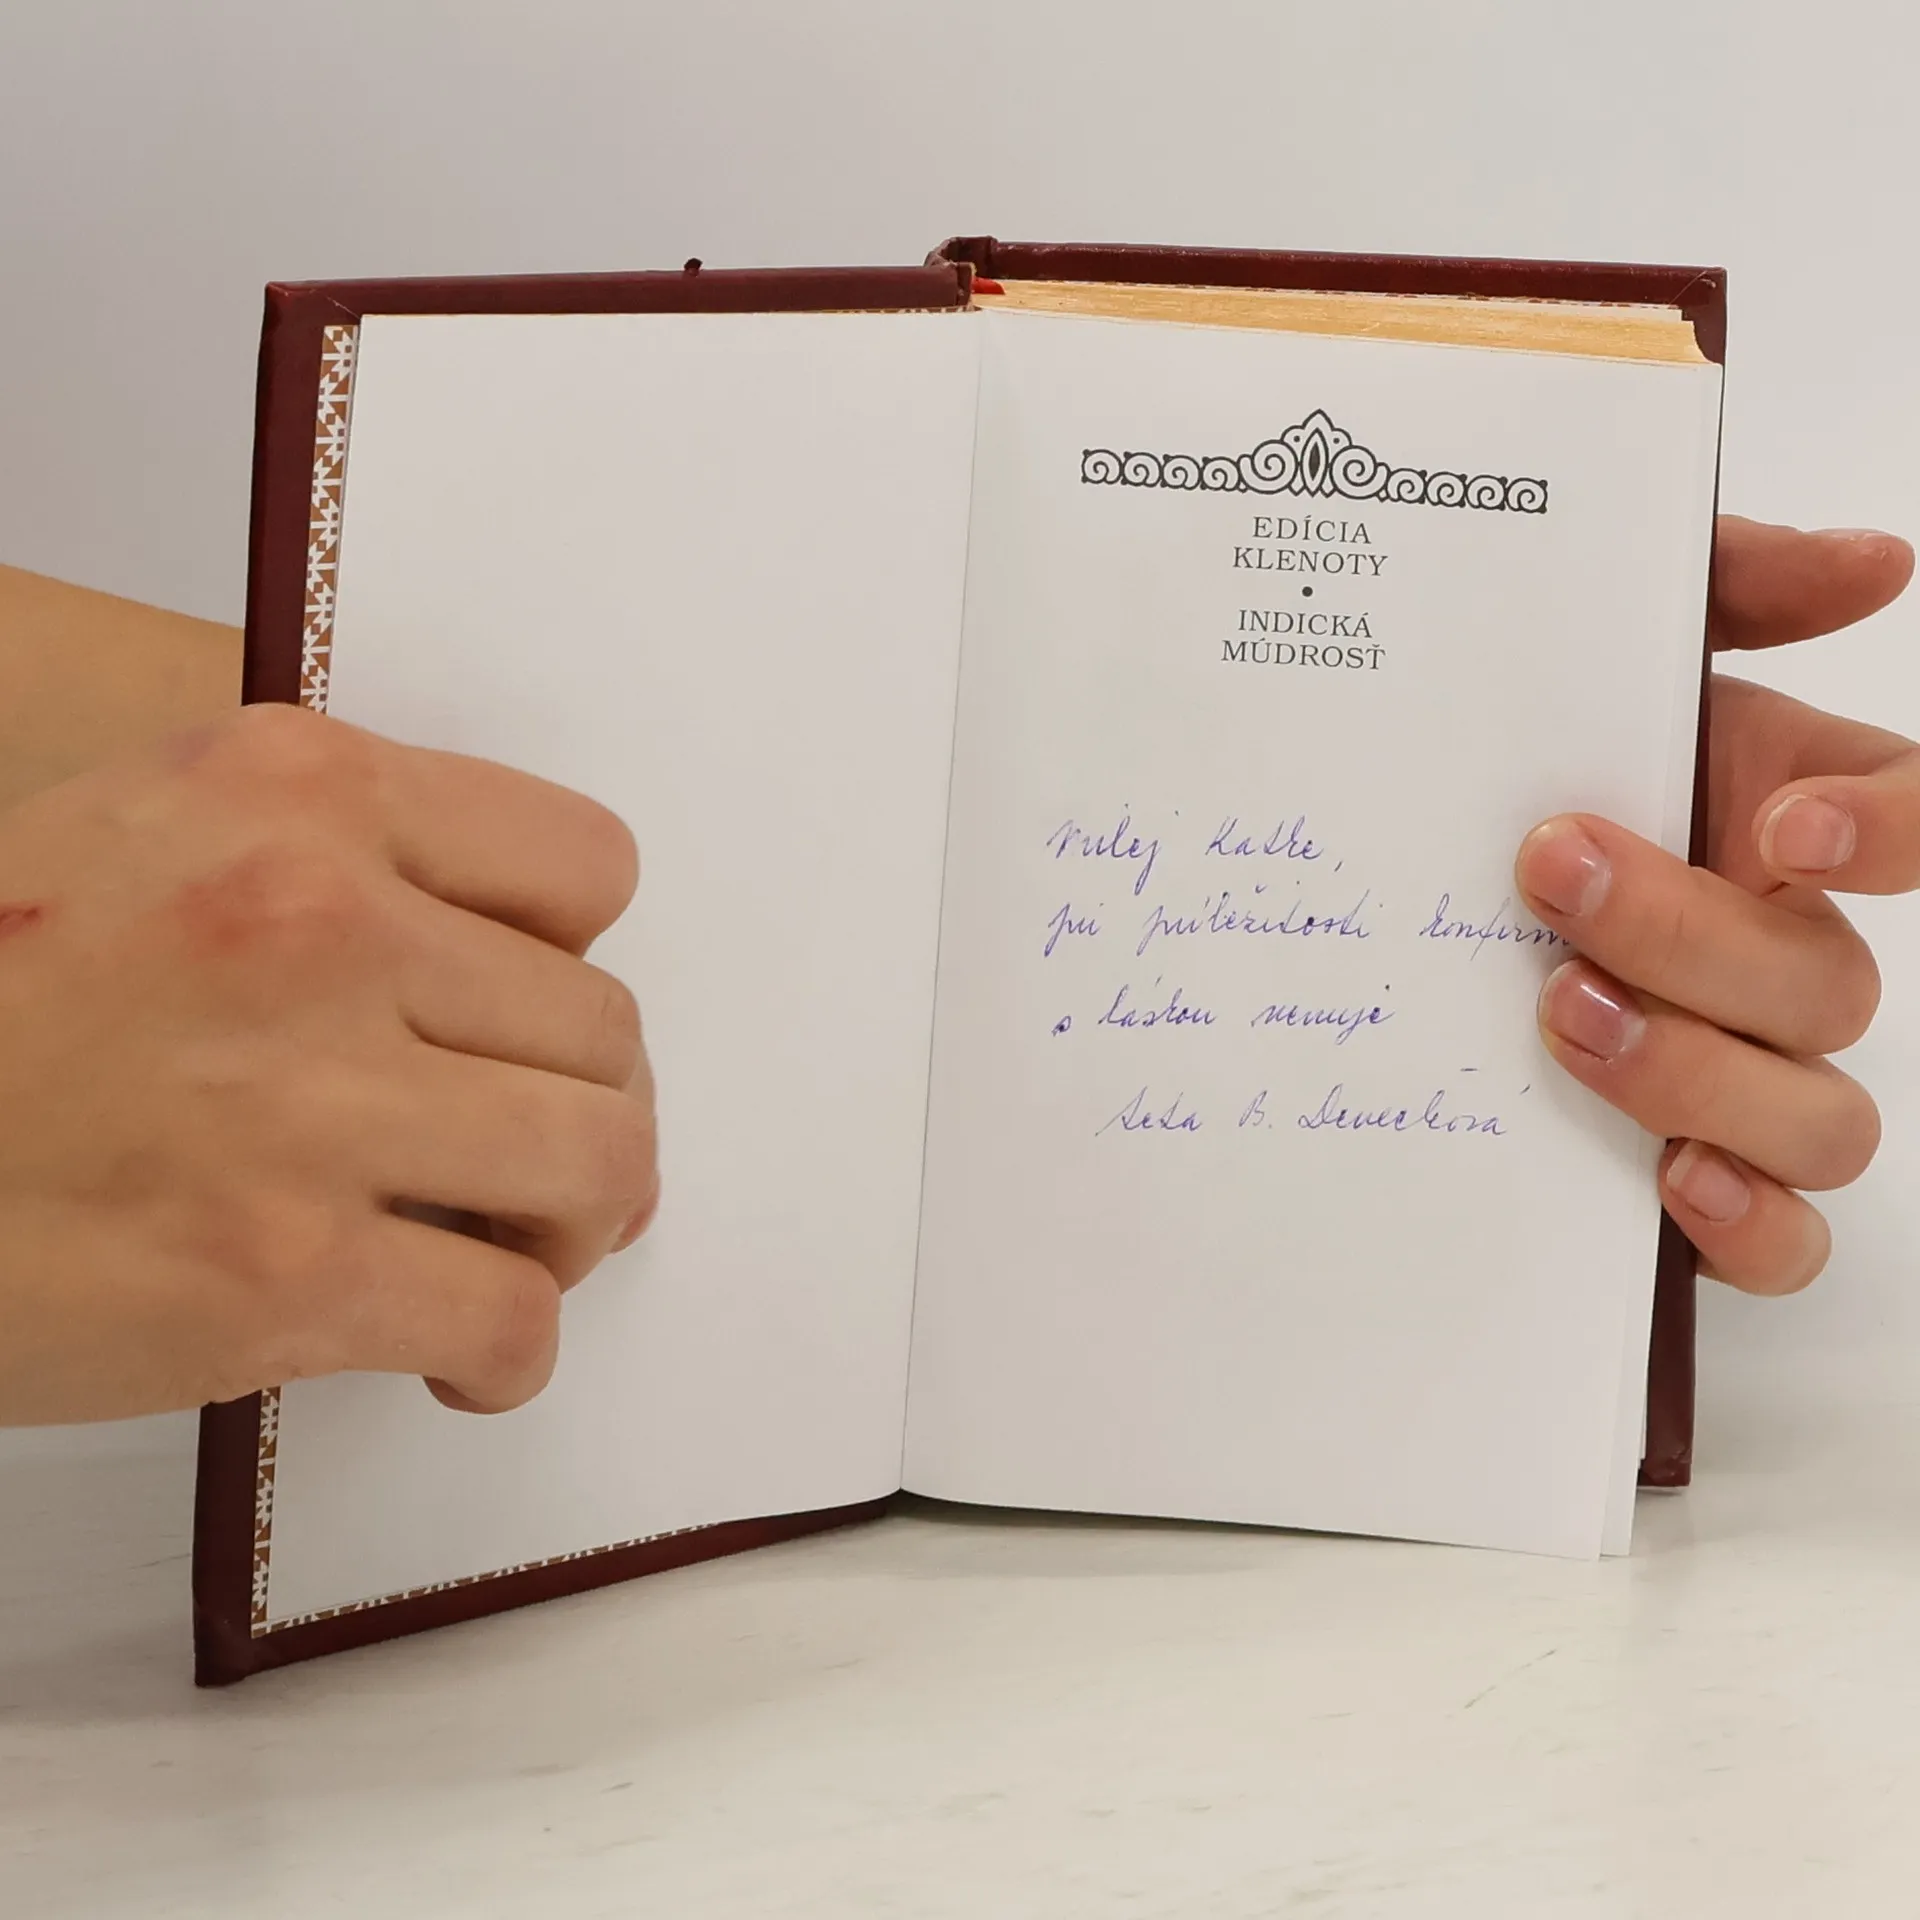 EDÍCIA
KLENOTY
•
INDICKÁ
MÚDROSŤ
Milej Katke,
pri príležitosti konfirm
s láskou venuje
teta B.